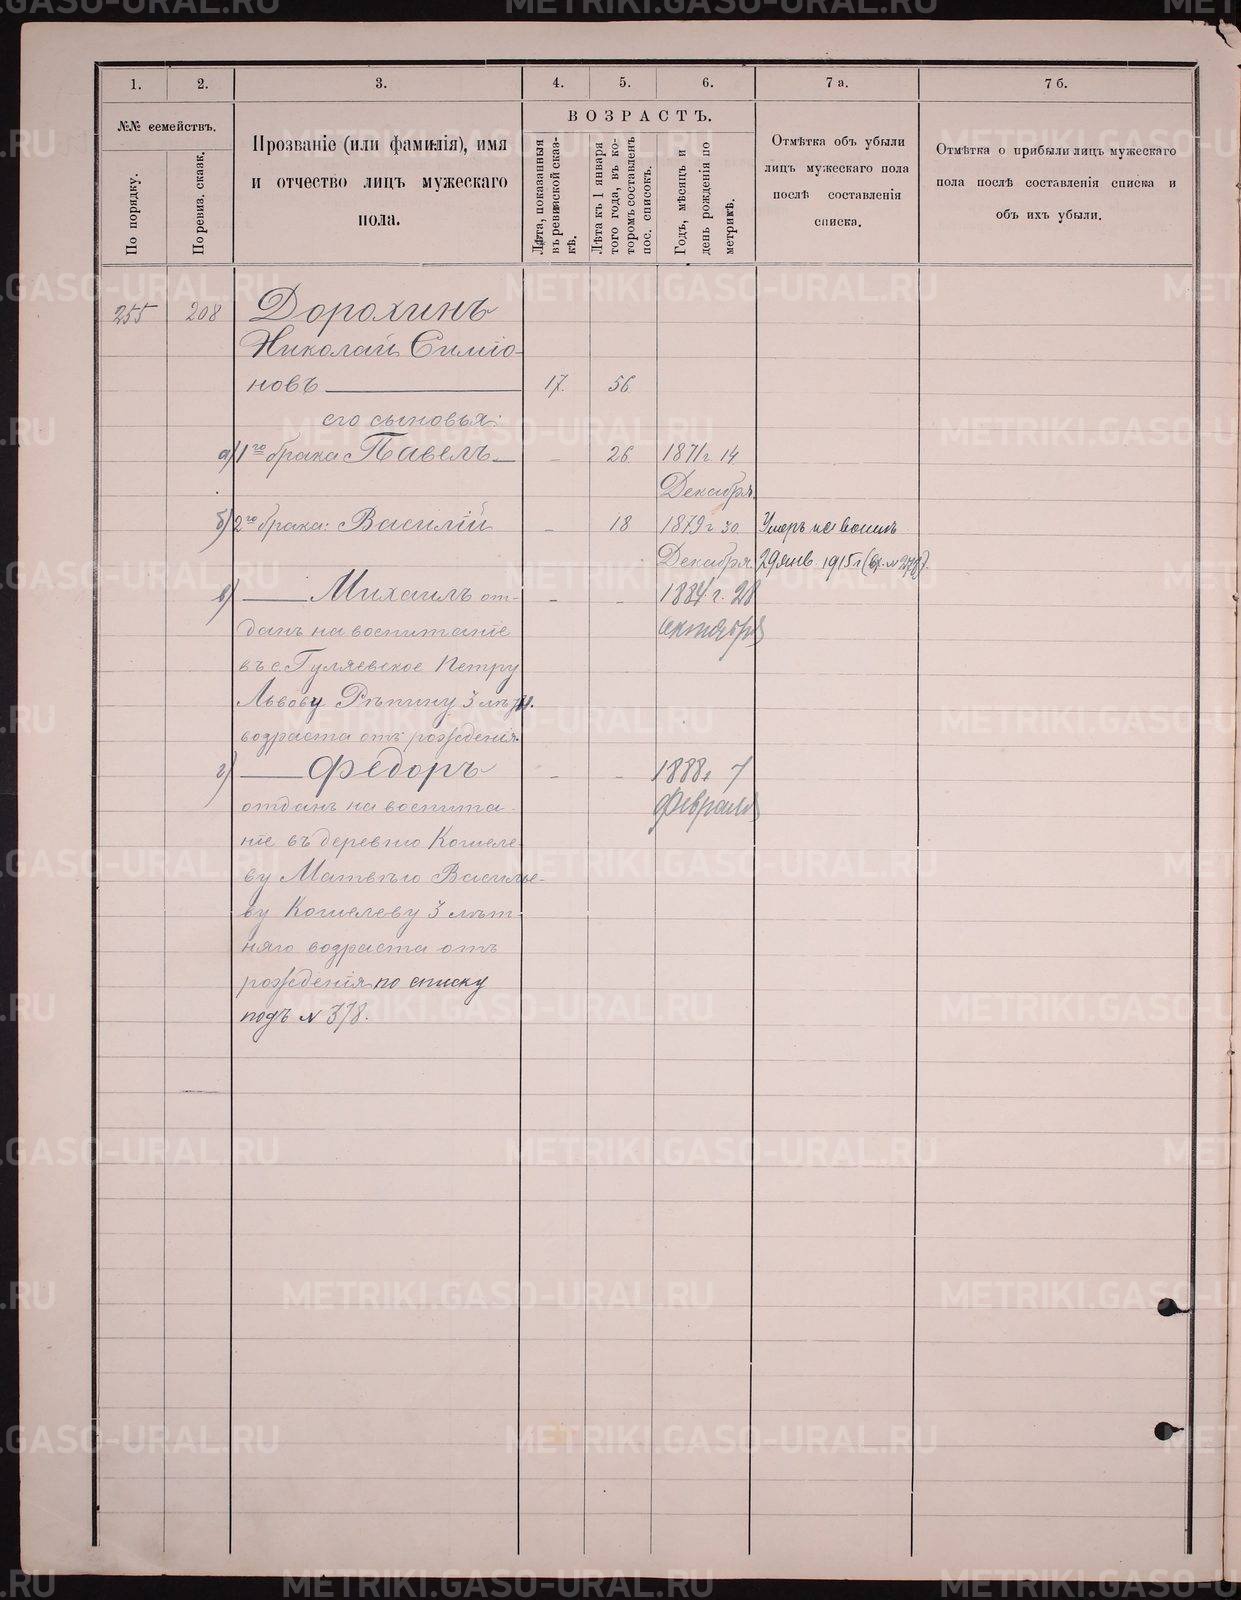 METRIKI.GASO-URAL.RU
1. 2. 3. 4. 5. 6. 7 а. 7 б.
№№ семействъ.
По порядку.
По ревиз. сказк.
Прозваніе (или фамилія), имя
и отчество лицъ мужескаго
пола.
ВОЗРАСТЪ.
Лѣта, показанныя
въ ревизской сказ-
кѣ.
Лѣта къ 1 января
того года, въ ко-
торомъ составленъ
пос. списокъ.
Годъ, мѣсяцъ и
день рожденія по
метрикѣ.
Отмѣтка объ убыли
лицъ мужескаго пола
послѣ составленія
списка.
Отмѣтка о прибыли лицъ мужескаго
пола послѣ составленія списка и
объ ихъ убыли.
255 208 Дорохинъ
Николай Симіо-
новъ 17. 56.
его сыновья:
а) 1го брака Павелъ - 26. 1871 г. 14
Декабря.
б) 2го брака: Василій - 18 1879 г. 30 Умеръ на войнѣ
Декабря. 29 янв. 1915 г. (вх. №
в) Михаилъ от- - - 1884 г. 28
данъ на воспитаніе октября
въ с. Гуляевское Петру
Львову Рѣпину 3 лѣтн.
возраста отъ рожденія.
г) Федоръ - - 1888 г. 7
отданъ на воспита- февраля
ніе въ деревню Кошеле-
ву Матвѣю Василье-
ву Кошелеву 3 лѣт-
няго возраста отъ
рожденія по списку
подъ № 378.